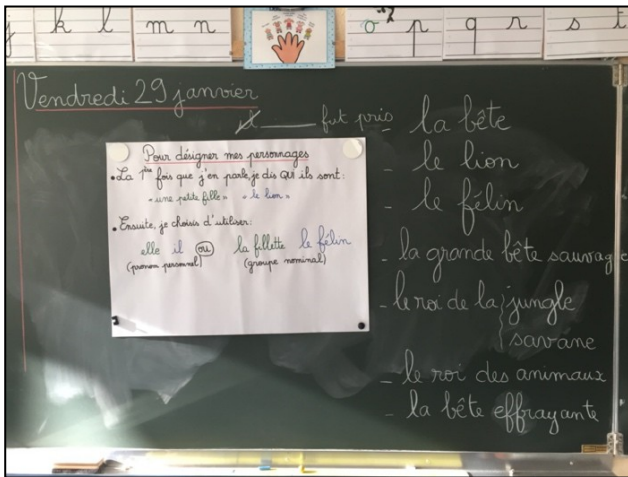 j k l m n o p q r s t
Vendredi 29 janvier
fut pris
Pour désigner mes personnages
• La 1ère fois que j'en parle, je dis QUI ils sont :
"une petite fille" "le lion"
• Ensuite, je choisis d'utiliser :
elle il ou la fillette le félin
(pronom personnel) (groupe nominal)
- la bête
- le lion
- le félin
- la grande bête sauvage
- le roi de la { jungle
{ savane
- le roi des animaux
- la bête effrayante